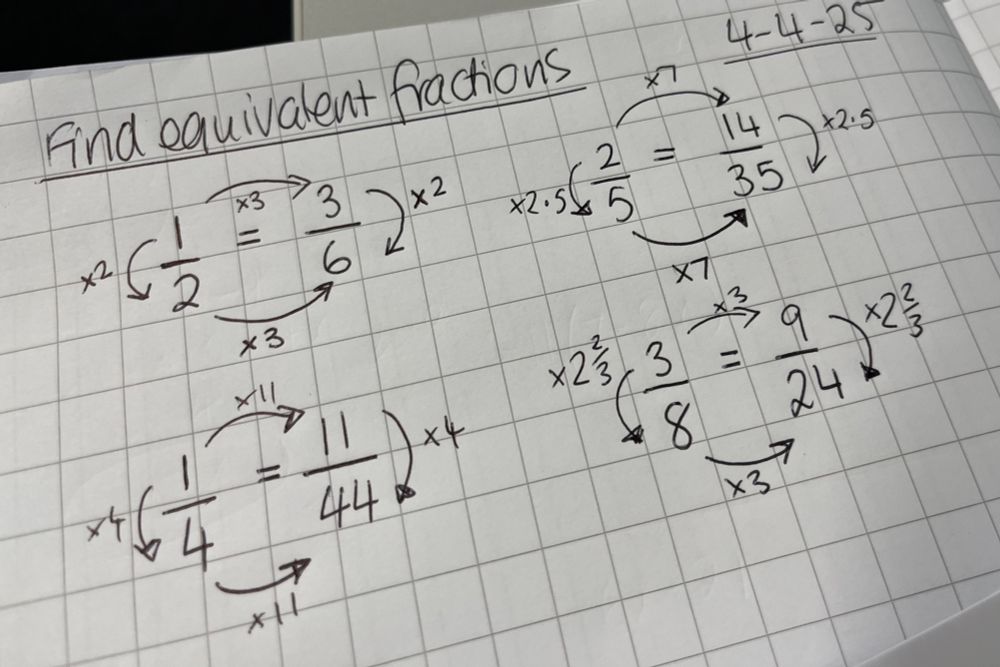 4-4-25
Find equivalent fractions
×3
×2 1/2 = 3/6 ×2
×3
×7
×2.5 2/5 = 14/35 ×2.5
×7
×11
×4 1/4 = 11/44 ×4
×11
×3
×2 2/3 3/8 = 9/24 ×2 2/3
×3